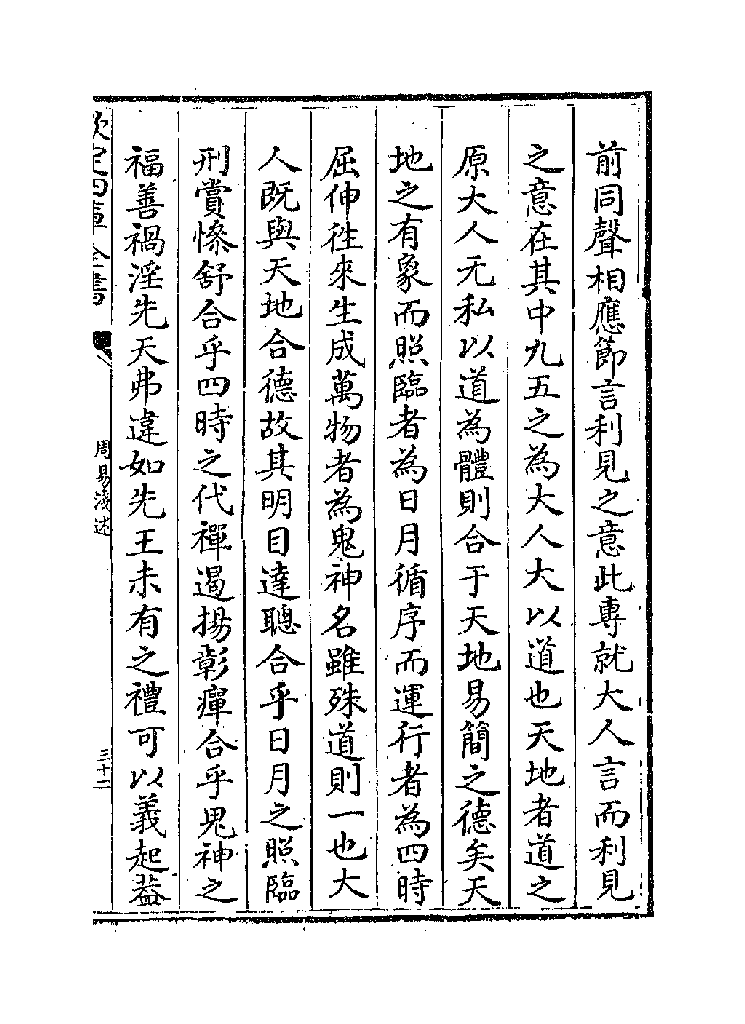 前同聲相應節言利見之意此專就大人言而利見
之意在其中九五之為大人大以道也天地者道之
原大人无私以道為體則合于天地易簡之德矣天
地之有象而照臨者為日月循序而運行者為四時
屈伸徃來生成萬物者為鬼神名雖殊道則一也大
人既與天地合德故其明目達聰合乎日月之照臨
刑賞慘舒合乎四時之代禪遏揚彰癉合乎鬼神之
福善禍淫先天弗違如先王未有之禮可以義起葢
欽定四庫全書
周易淺述
三十二